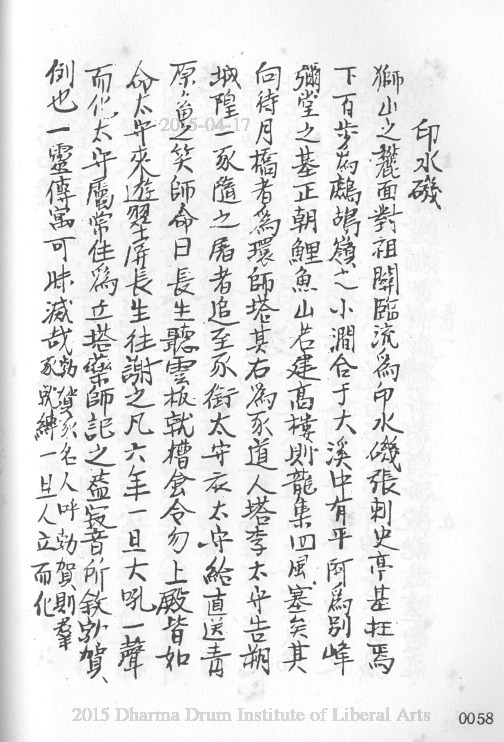 印水磯
獅山之麓面對祖關臨流為印水磯張刺史亭基在焉
下百步為鷓鴣嶺之小澗合于大溪中有平阿為別峰
彌堂之基正朝鯉魚山若建高樓則龍集四風塞矣其
向待月橋者為環師塔其右為豕道人塔李太守告朔
城隍豕隨之屠者追至豕銜太守衣太守給直送青
原奠之笑師命曰長生聽雲板就槽食令勿上殿皆如
命太守來遊翠屏長生往謝之凡六年一旦大吼一聲
而化太守屬常住為立塔藥師記之蓋寂音所敘勃賀
例也一靈傳寓可昧滅哉勃賀豕名人呼勃賀則羣
豕成繞一旦人立而化
2015-04-17
2015 Dharma Drum Institute of Liberal Arts
0058